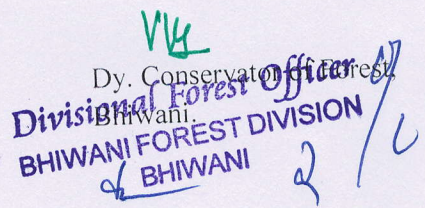 Dy. Conservator of Forest,
Bhiwani.
Divisional Forest Officer
BHIWANI FOREST DIVISION
BHIWANI